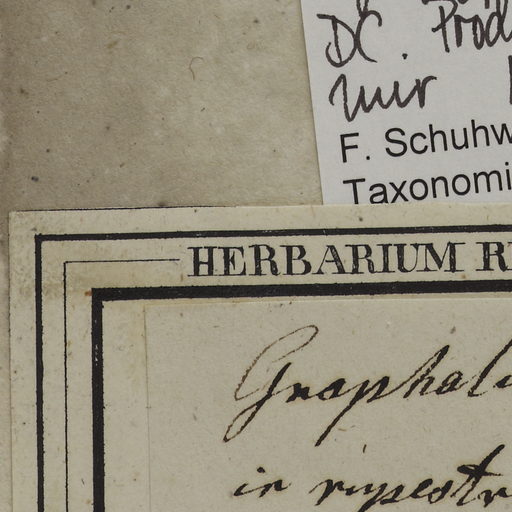 DC. Prod
nur
F. Schuhw
Taxonomi
HERBARIUM R
Gnaphali
in rupestr